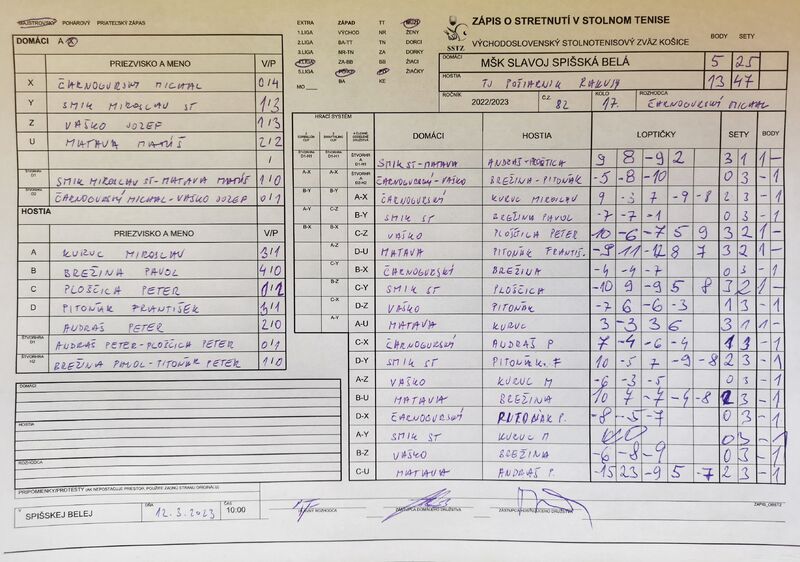 MAJSTROVSKÝ POHÁROVÝ PRIATEĽSKÝ ZÁPAS
EXTRA ZÁPAD TT MUŽI
1.LIGA VÝCHOD NR ŽENY
2.LIGA BA-TT TN DORCI
3.LIGA NR-TN ZA DORKY
4.LIGA ZA-BB BB ŽIACI
5.LIGA PO-KE PO ŽIAČKY
MO BA KE
SSTZ
ZÁPIS O STRETNUTÍ V STOLNOM TENISE
VÝCHODOSLOVENSKÝ STOLNOTENISOVÝ ZVÄZ KOŠICE
BODY SETY
DOMÁCI MŠK SLAVOJ SPIŠSKÁ BELÁ 5 25
HOSTIA TJ POŠTÁRNIK RAKUSY 13 47
ROČNÍK 2022/2023 Č.Z. 82 KOLO 17. ROZHODCA ČARNOGURSKÝ MICHAL
DOMÁCI A X
PRIEZVISKO A MENO V/P
X ČARNOGURSKÝ MICHAL 0/4
Y SMIK MIROSLAV ST 1/3
Z VAŠKO JOZEF 1/3
U MATAVA MATÚŠ 2/2
/
ŠTVORHRA D1 SMIK MIROSLAV ST-MATAVA MATÚŠ 1/0
ŠTVORHRA D2 ČARNOGURSKÝ MICHAL-VAŠKO JOZEF 0/1
HOSTIA
PRIEZVISKO A MENO V/P
A KURUC MIROSLAV 3/1
B BREŽINA PAVOL 4/0
C PLOŠČICA PETER 0/2
D PITOŇÁK FRANTIŠEK 3/1
ANDRÁŠ PETER 2/0
ŠTVORHRA D1 ANDRÁŠ PETER-PLOŠČICA PETER 0/1
ŠTVORHRA H2 BREŽINA PAVOL-PITOŇÁK PETER 1/0
HRACÍ SYSTÉM
DOMÁCI HOSTIA LOPTIČKY SETY BODY
ŠTVORHRA D1-H1 SMIK ST-MATAVA ANDRÁŠ-PLOŠČICA 9 8 -9 2 3 1 1 -
ŠTVORHRA D2-H2 ČARNOGURSKÝ-VAŠKO BREŽINA-PITOŇÁK -5 -8 -10 0 3 - 1
A-X ČARNOGURSKÝ KURUC MIROSLAV 9 -3 7 -9 -8 2 3 - 1
B-Y SMIK ST BREŽINA PAVOL -7 -7 -1 0 3 - 1
C-Z VAŠKO PLOŠČICA PETER 10 -6 -7 5 9 3 2 1 -
D-U MATAVA PITOŇÁK FRANTIŠ. -9 11 -12 8 7 3 2 1 -
B-X ČARNOGURSKÝ BREŽINA -4 -4 -7 0 3 - 1
C-Y SMIK ST PLOŠČICA -10 9 -9 5 8 3 2 1 -
D-Z VAŠKO PITOŇÁK -7 6 -6 -3 1 3 - 1
A-U MATAVA KURUC 3 -3 3 6 3 1 1 -
C-X ČARNOGURSKÝ ANDRÁŠ P 7 -4 -6 -4 1 3 - 1
D-Y SMIK ST PITOŇÁK. F 10 -5 7 -9 -8 2 3 - 1
A-Z VAŠKO KURUC M -6 -3 -5 0 3 - 1
B-U MATAVA BREŽINA 10 7 -7 -4 -8 2 3 - 1
D-X ČARNOGURSKÝ PITOŇÁK F. -8 -5 -7 0 3 - 1
A-Y SMIK ST KURUC M 0 3 - 1
B-Z VAŠKO BREŽINA -6 -8 -9 0 3 - 1
C-U MATAVA ANDRÁŠ P. -15 23 -9 5 -7 2 3 - 1
DOMÁCI
HOSTIA
ROZHODCA
PRIPOMIENKY/PROTESTY (AK NEPOSTAČUJE PRIESTOR, POUŽITE ZADNÚ STRANU ORIGINÁLU)
V SPIŠSKEJ BELEJ DŇA 12.3.2023 ČAS 10:00
HLAVNÝ ROZHODCA ZÁSTUPCA DOMÁCEHO DRUŽSTVA ZÁSTUPCA HOSŤUJÚCEHO DRUŽSTVA ZÁPIS_OBSTZ